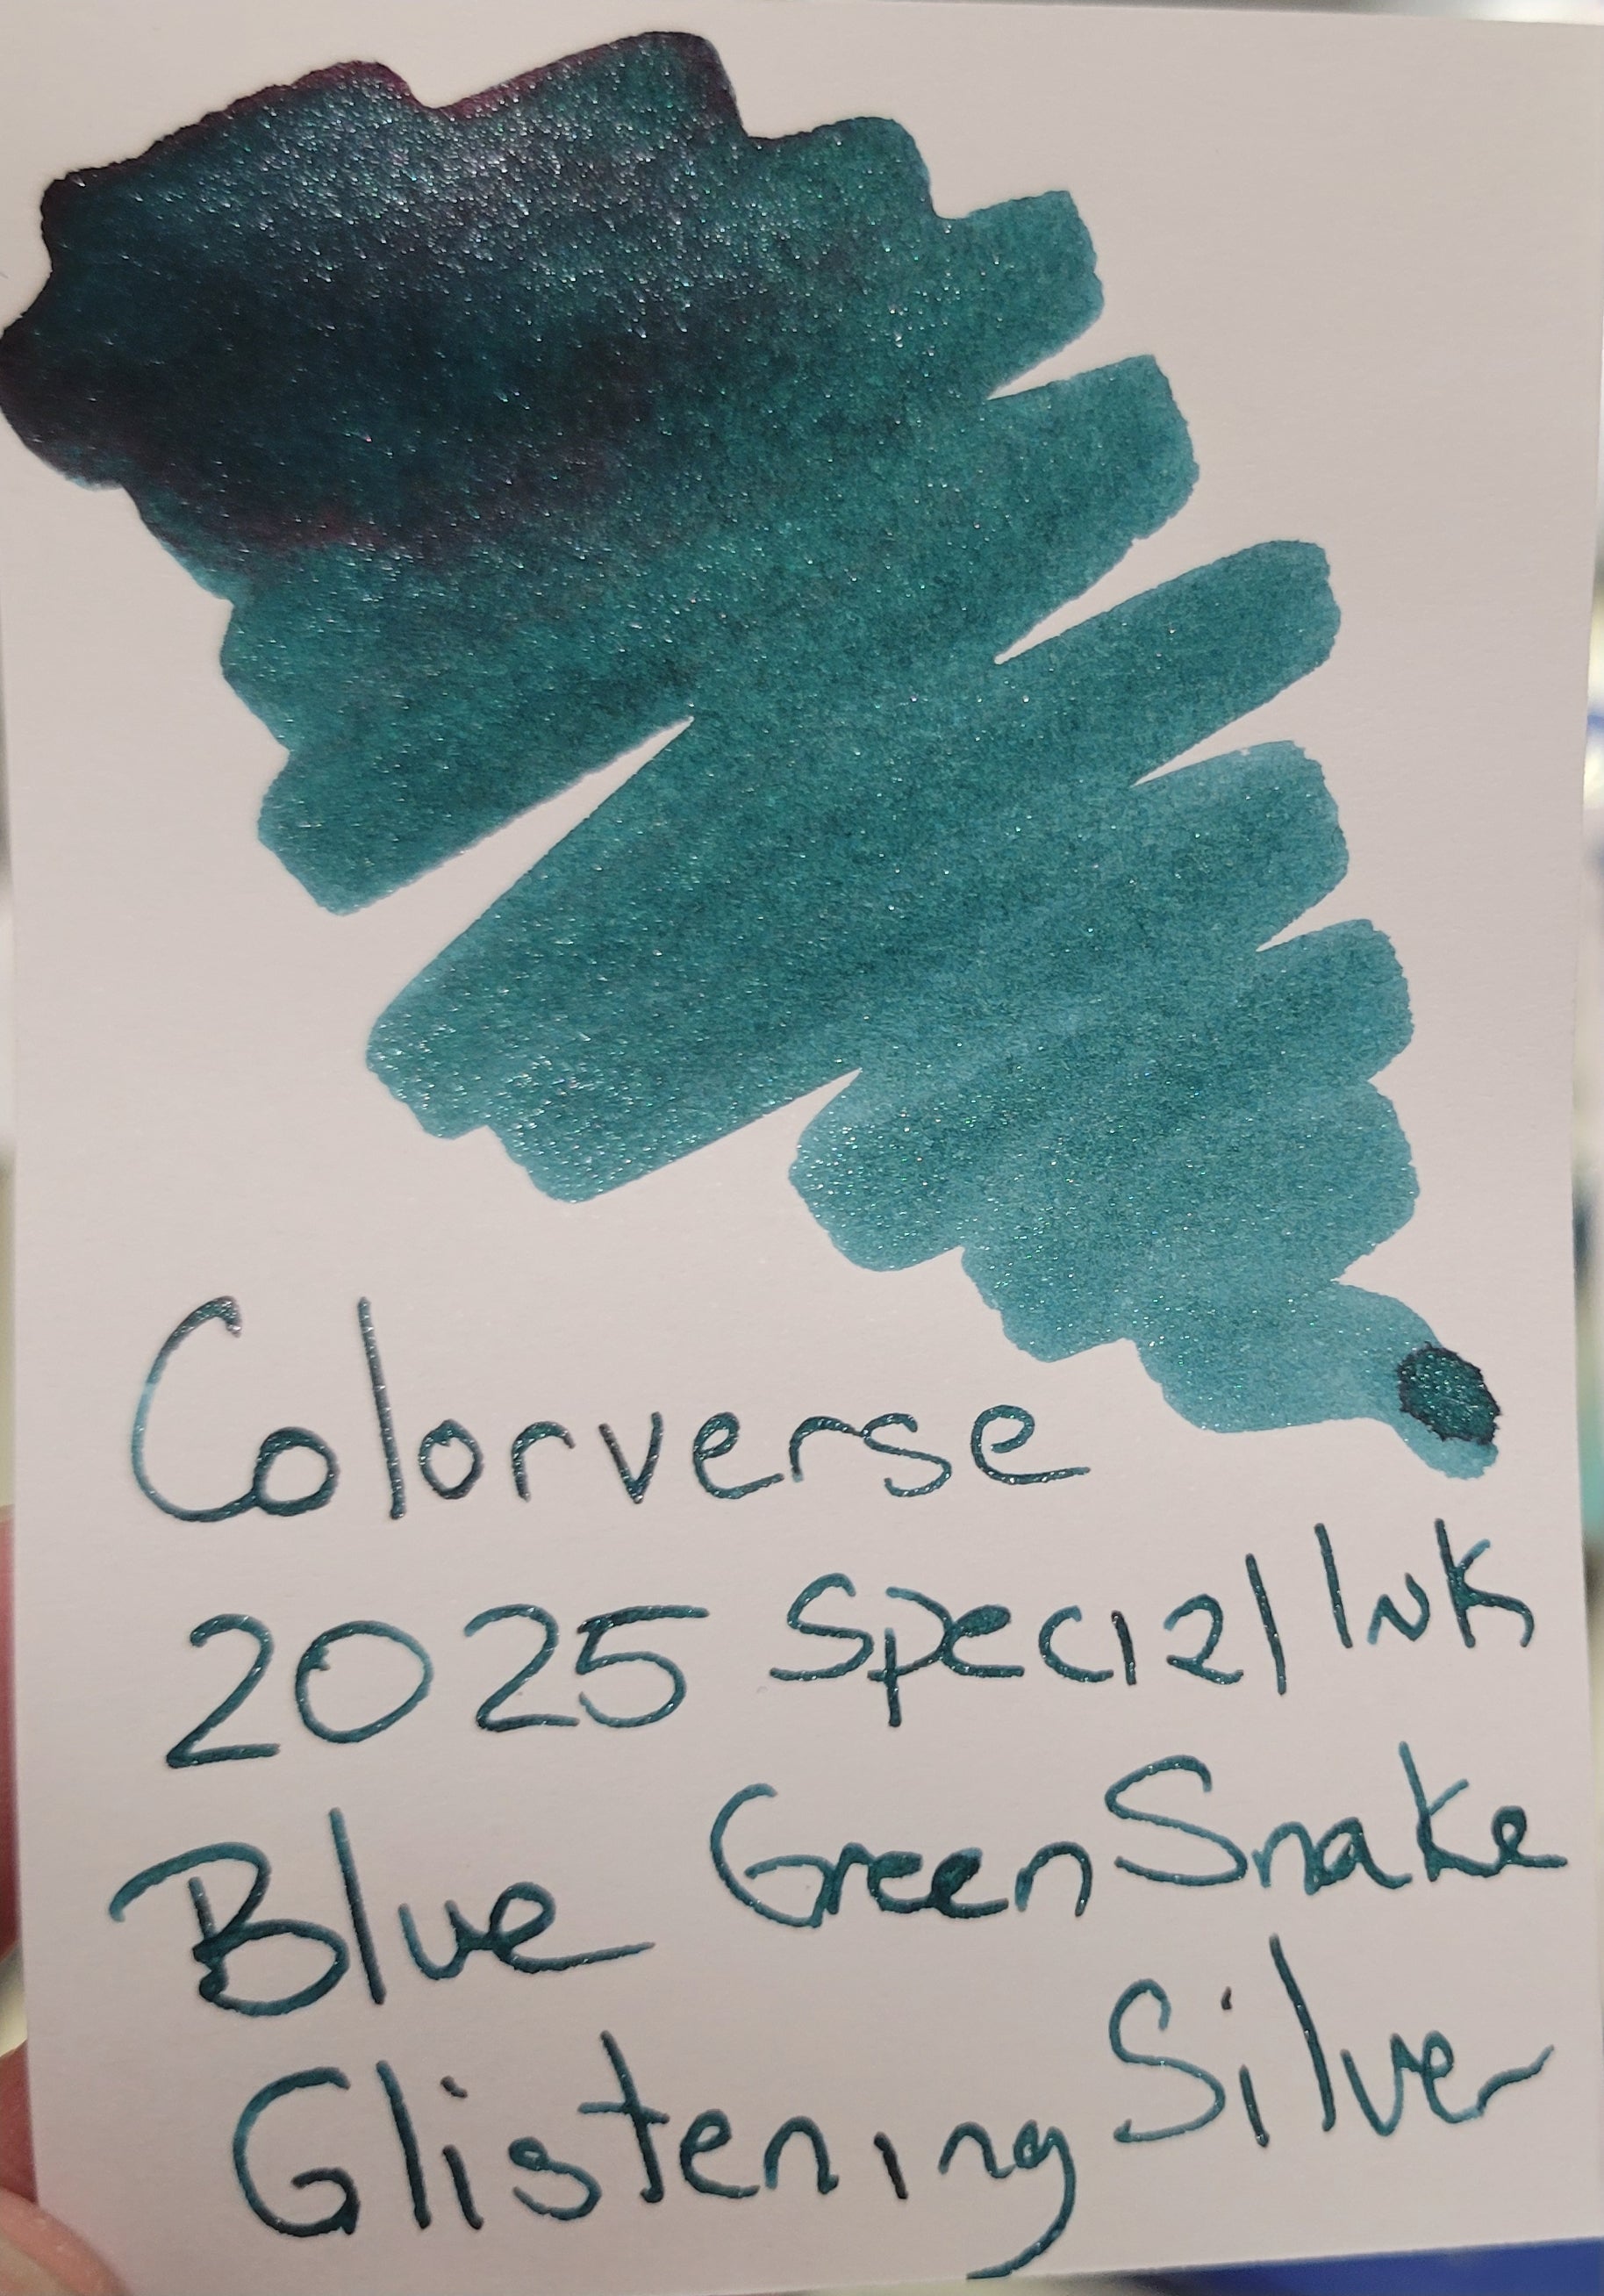 Colorverse
2025 Special Ink
Blue Green Snake
Glistening Silver